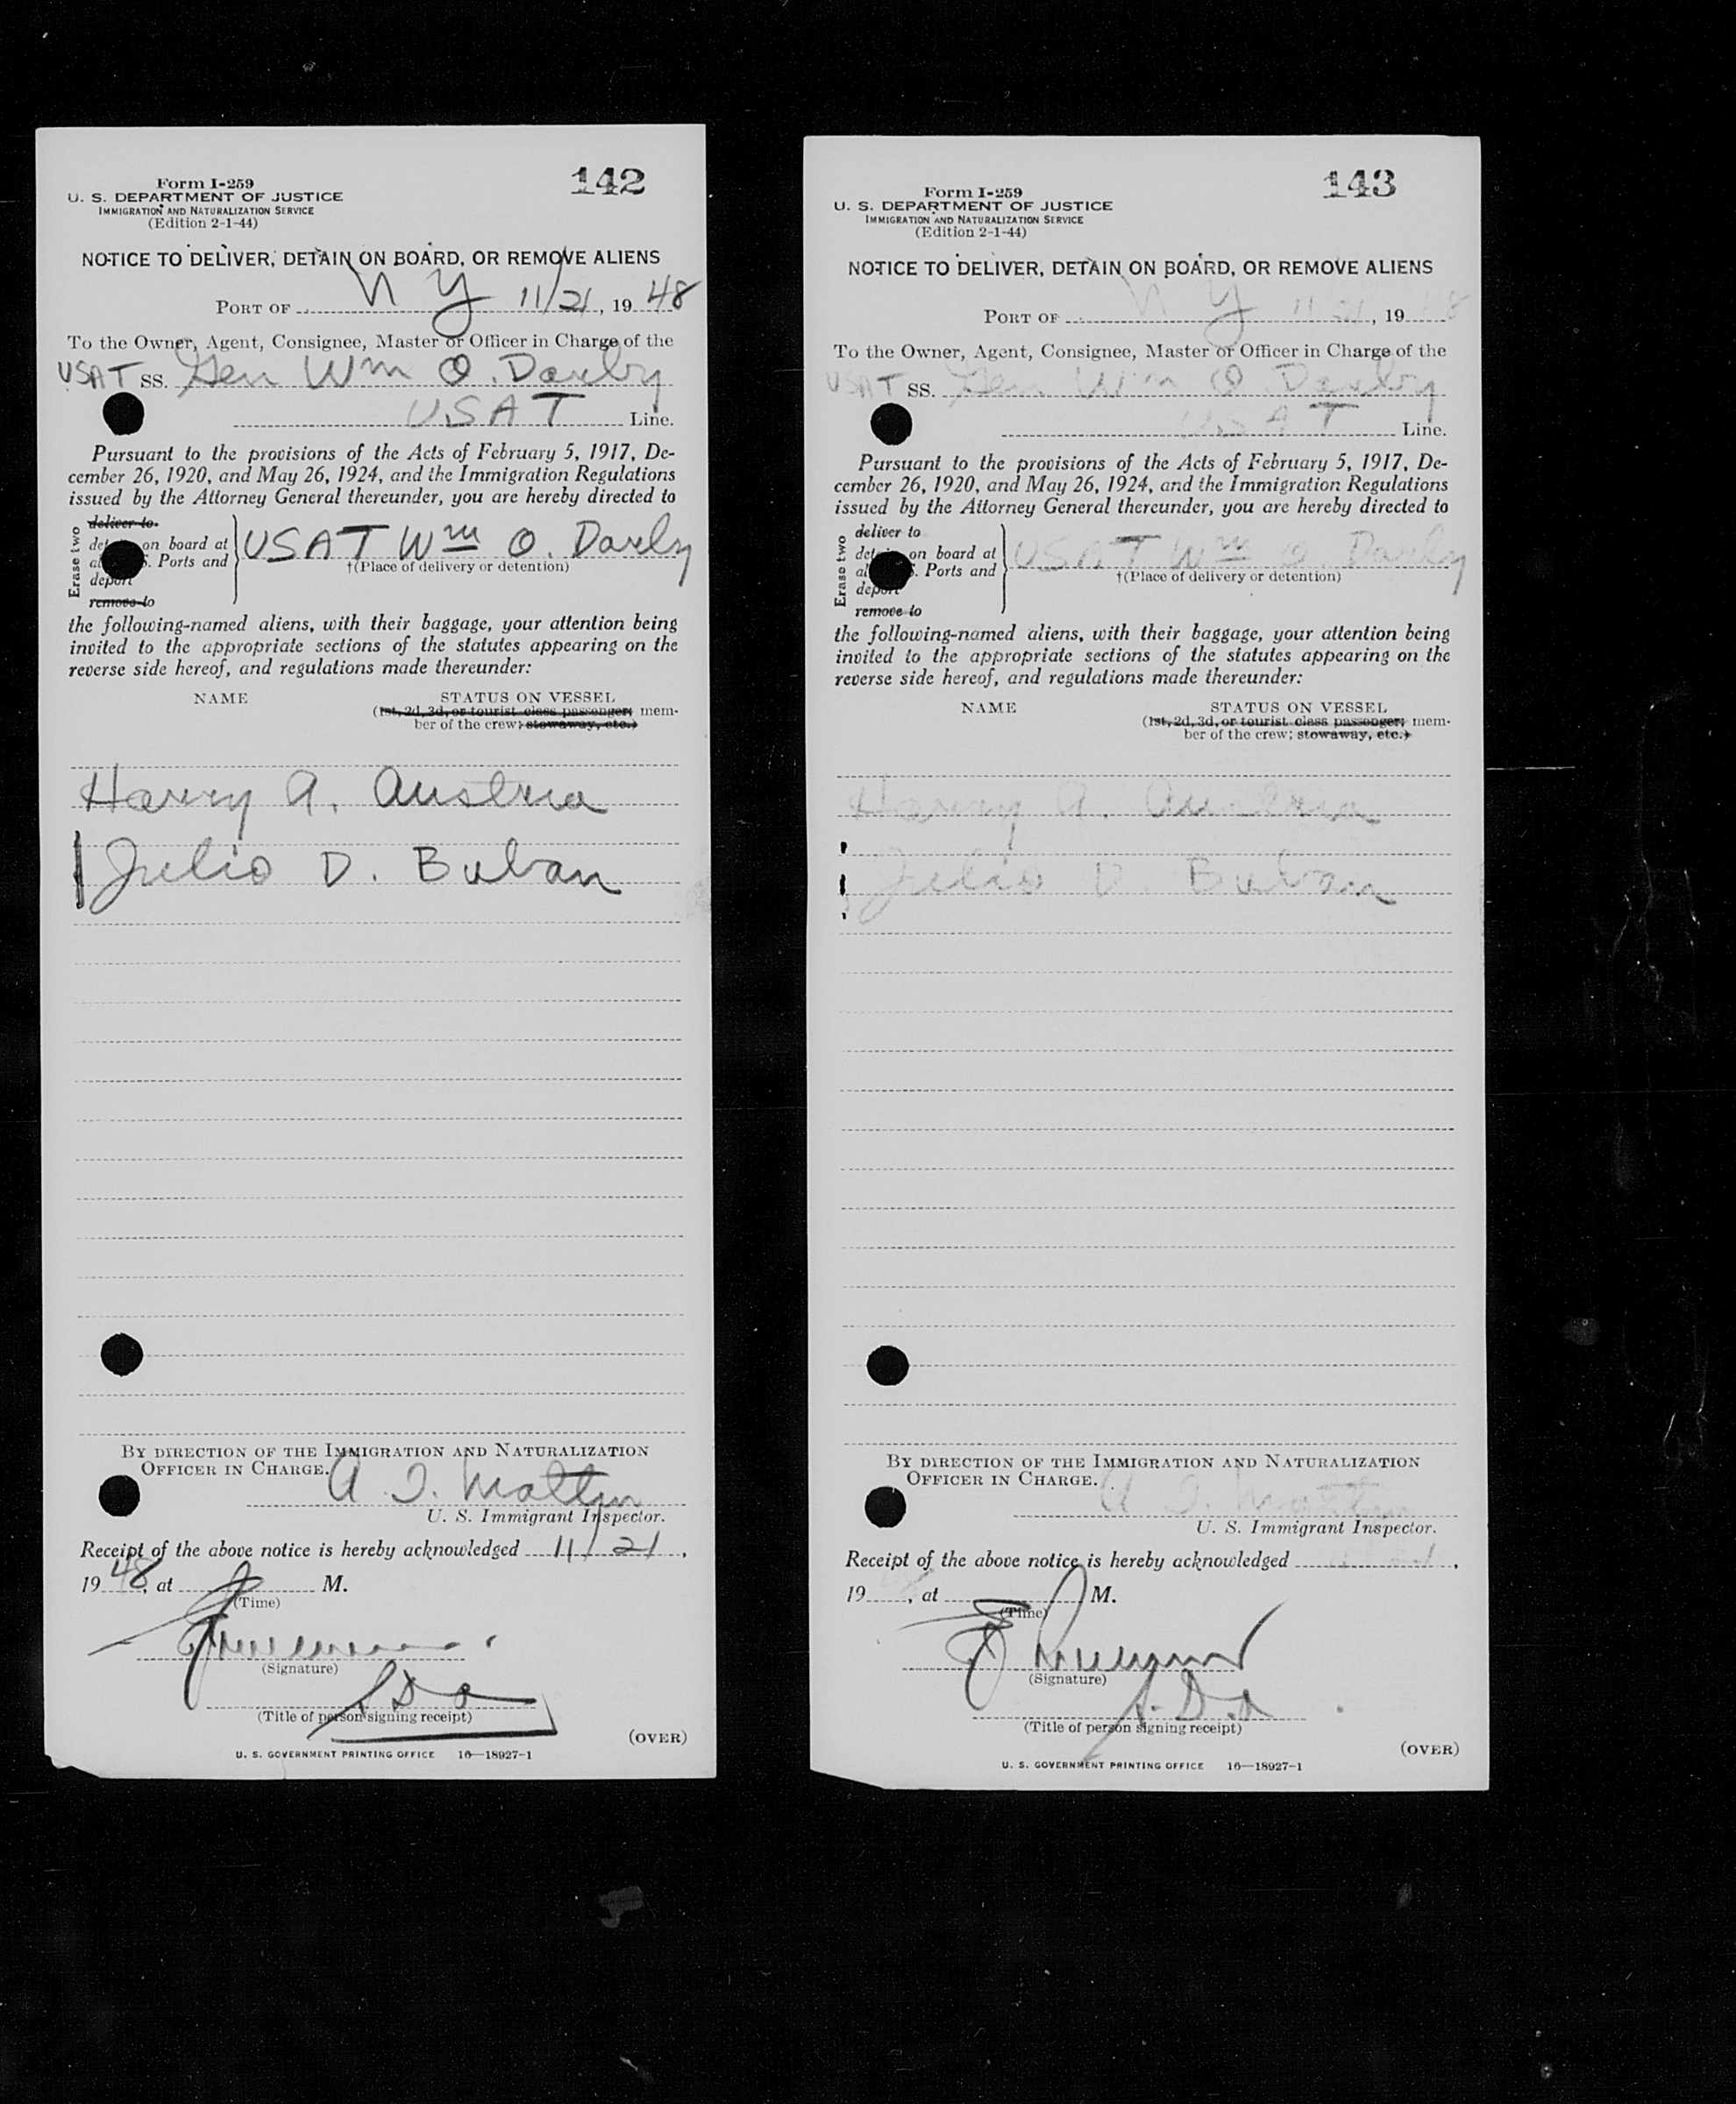 142
Form I-259
U. S. DEPARTMENT OF JUSTICE
IMMIGRATION AND NATURALIZATION SERVICE
(Edition 2-1-44)
NOTICE TO DELIVER, DETAIN ON BOARD, OR REMOVE ALIENS
PORT OF N Y 11/21, 19 48
To the Owner, Agent, Consignee, Master or Officer in Charge of the
USAT SS. Gen Wm O. Darby
USAT Line.
Pursuant to the provisions of the Acts of February 5, 1917, De-
cember 26, 1920, and May 26, 1924, and the Immigration Regulations
issued by the Attorney General thereunder, you are hereby directed to
Erase two
deliver to
on board at
Ports and
deport
remove to
USAT Wm O. Darby
†(Place of delivery or detention)
the following-named aliens, with their baggage, your attention being
invited to the appropriate sections of the statutes appearing on the
reverse side hereof, and regulations made thereunder:
NAME STATUS ON VESSEL
(1st, 2d, 3d, or tourist class passenger; mem-
ber of the crew; stowaway, etc.)
Harry A. Austria
Julio D. Buban
BY DIRECTION OF THE IMMIGRATION AND NATURALIZATION
OFFICER IN CHARGE.
U. S. Immigrant Inspector.
Receipt of the above notice is hereby acknowledged 11/21,
19 48, at M.
(Time)
(Signature)
(Title of person signing receipt)
(OVER)
U. S. GOVERNMENT PRINTING OFFICE 16—18927-1
143
Form I-259
U. S. DEPARTMENT OF JUSTICE
IMMIGRATION AND NATURALIZATION SERVICE
(Edition 2-1-44)
NOTICE TO DELIVER, DETAIN ON BOARD, OR REMOVE ALIENS
PORT OF N Y 11 21, 19 48
To the Owner, Agent, Consignee, Master or Officer in Charge of the
USAT SS. Gen Wm O. Darby
USAT Line.
Pursuant to the provisions of the Acts of February 5, 1917, De-
cember 26, 1920, and May 26, 1924, and the Immigration Regulations
issued by the Attorney General thereunder, you are hereby directed to
Erase two
deliver to
on board at
Ports and
deport
remove to
USAT Wm O. Darby
†(Place of delivery or detention)
the following-named aliens, with their baggage, your attention being
invited to the appropriate sections of the statutes appearing on the
reverse side hereof, and regulations made thereunder:
NAME STATUS ON VESSEL
(1st, 2d, 3d, or tourist class passenger; mem-
ber of the crew; stowaway, etc.)
Harry A. Austria
Julio D. Buban
BY DIRECTION OF THE IMMIGRATION AND NATURALIZATION
OFFICER IN CHARGE.
U. S. Immigrant Inspector.
Receipt of the above notice is hereby acknowledged
19 , at M.
(Time)
(Signature)
(Title of person signing receipt)
(OVER)
U. S. GOVERNMENT PRINTING OFFICE 16—18927-1